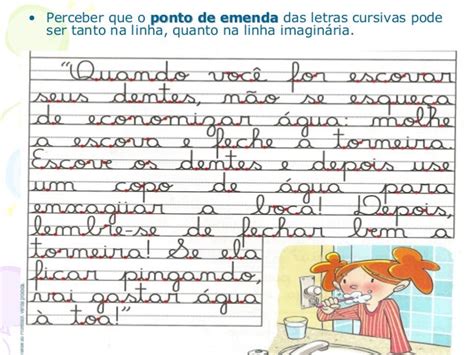 • Perceber que o ponto de emenda das letras cursivas pode
ser tanto na linha, quanto na linha imaginária.
"Quando você for escovar
seus dentes, não se esqueça
de economizar água: molhe
a escova e feche a torneira.
Escove os dentes e depois use
um copo de água para
enxagüar a boca! Depois,
lembre-se de fechar bem a
torneira! Se ela
ficar pingando,
vai gastar água
à toa!"